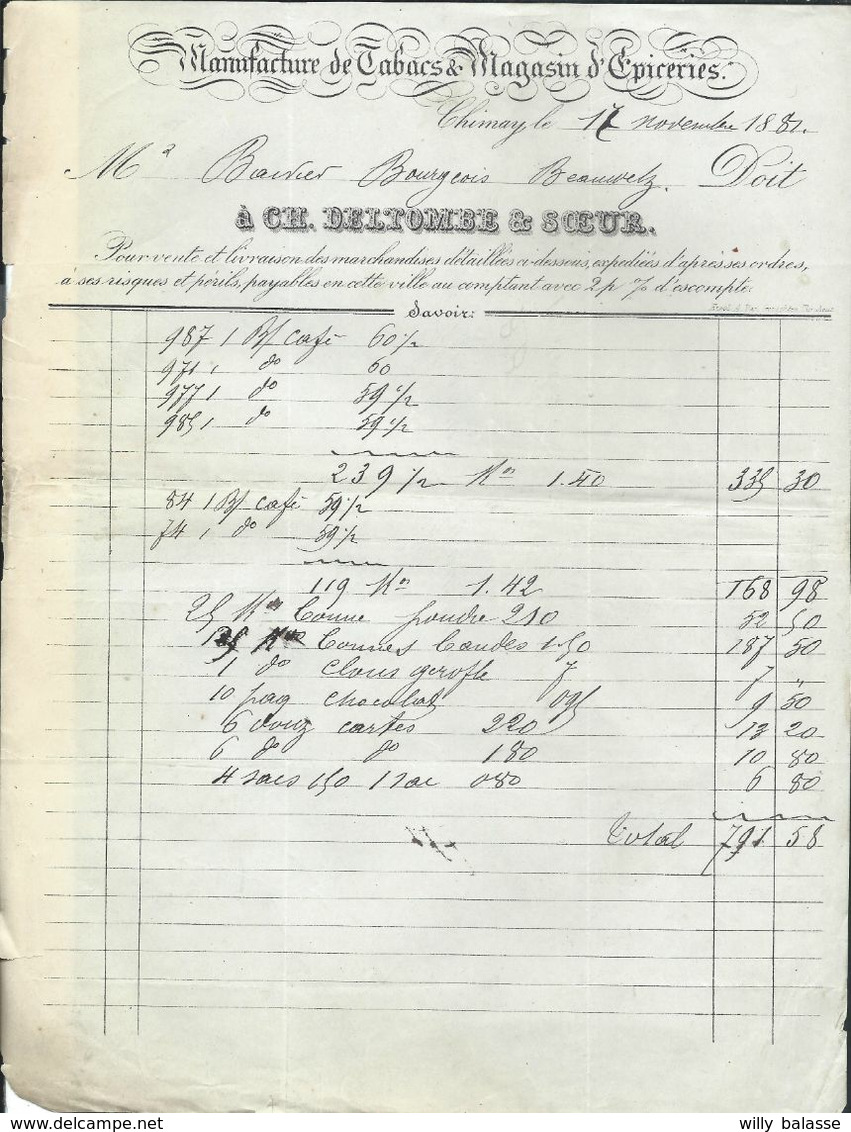 Manufacture de Tabacs & Magasin d'Epiceries.
Chimay, le 17 novembre 1881.
Mr Bourgeois Beauwelz. Doit
à CH. DELTOMBE & SŒUR.
Pour vente et livraison des marchandises détaillées ci-dessous, expediées d'après ses ordres,
à ses risques et périls, payables en cette ville au comptant avec 2 p % d'escompte.
Savoir:
987 1 B/ café 60 1/2
971 1 do 60
977 1 do 59 1/2
985 1 do 59 1/2
239 1/2 Kos 1.40 335 30
84 1 B/ café 59 1/2
74 1 do 59 1/2
119 Kos 1.42 168 98
25 Kos Tonne poudre 210 52 50
125 Kos Tonnes Candes 1.50 187 50
1 do Clous gerofle 7 7 "
10 paq chocolat 095 9 50
6 douz cartes 220 13 20
6 do do 180 10 80
4 sacs 150 1 sac 080 6 80
Total 791 58
willy balasse